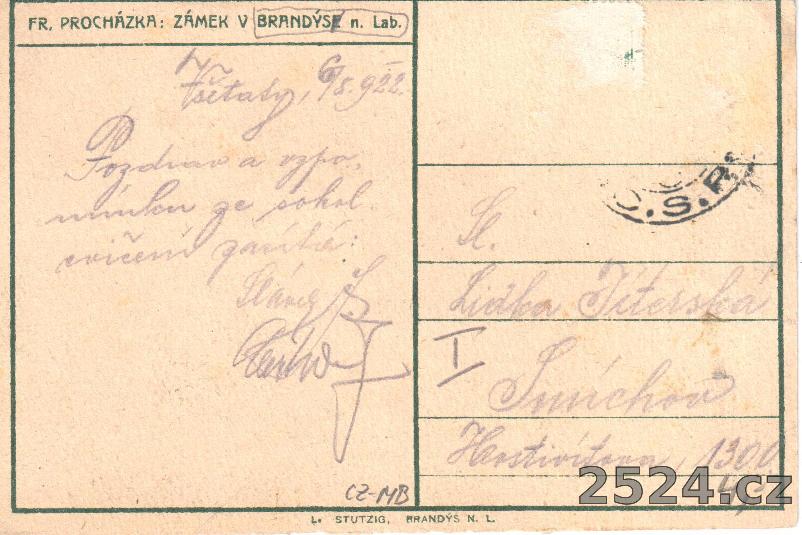 FR. PROCHÁZKA: ZÁMEK V BRANDÝSE n. Lab.
Všetaty, 6/8. 922.
Pozdrav a vzpo,
mínku ze sokol.
cvičení zasílá:
Sl.
Lidka Jiterská
I
Smíchov
Hostivítova, 1300
Č. S. R.
CZ-MB
L. STUTZIG, BRANDÝS N. L.
2524.cz